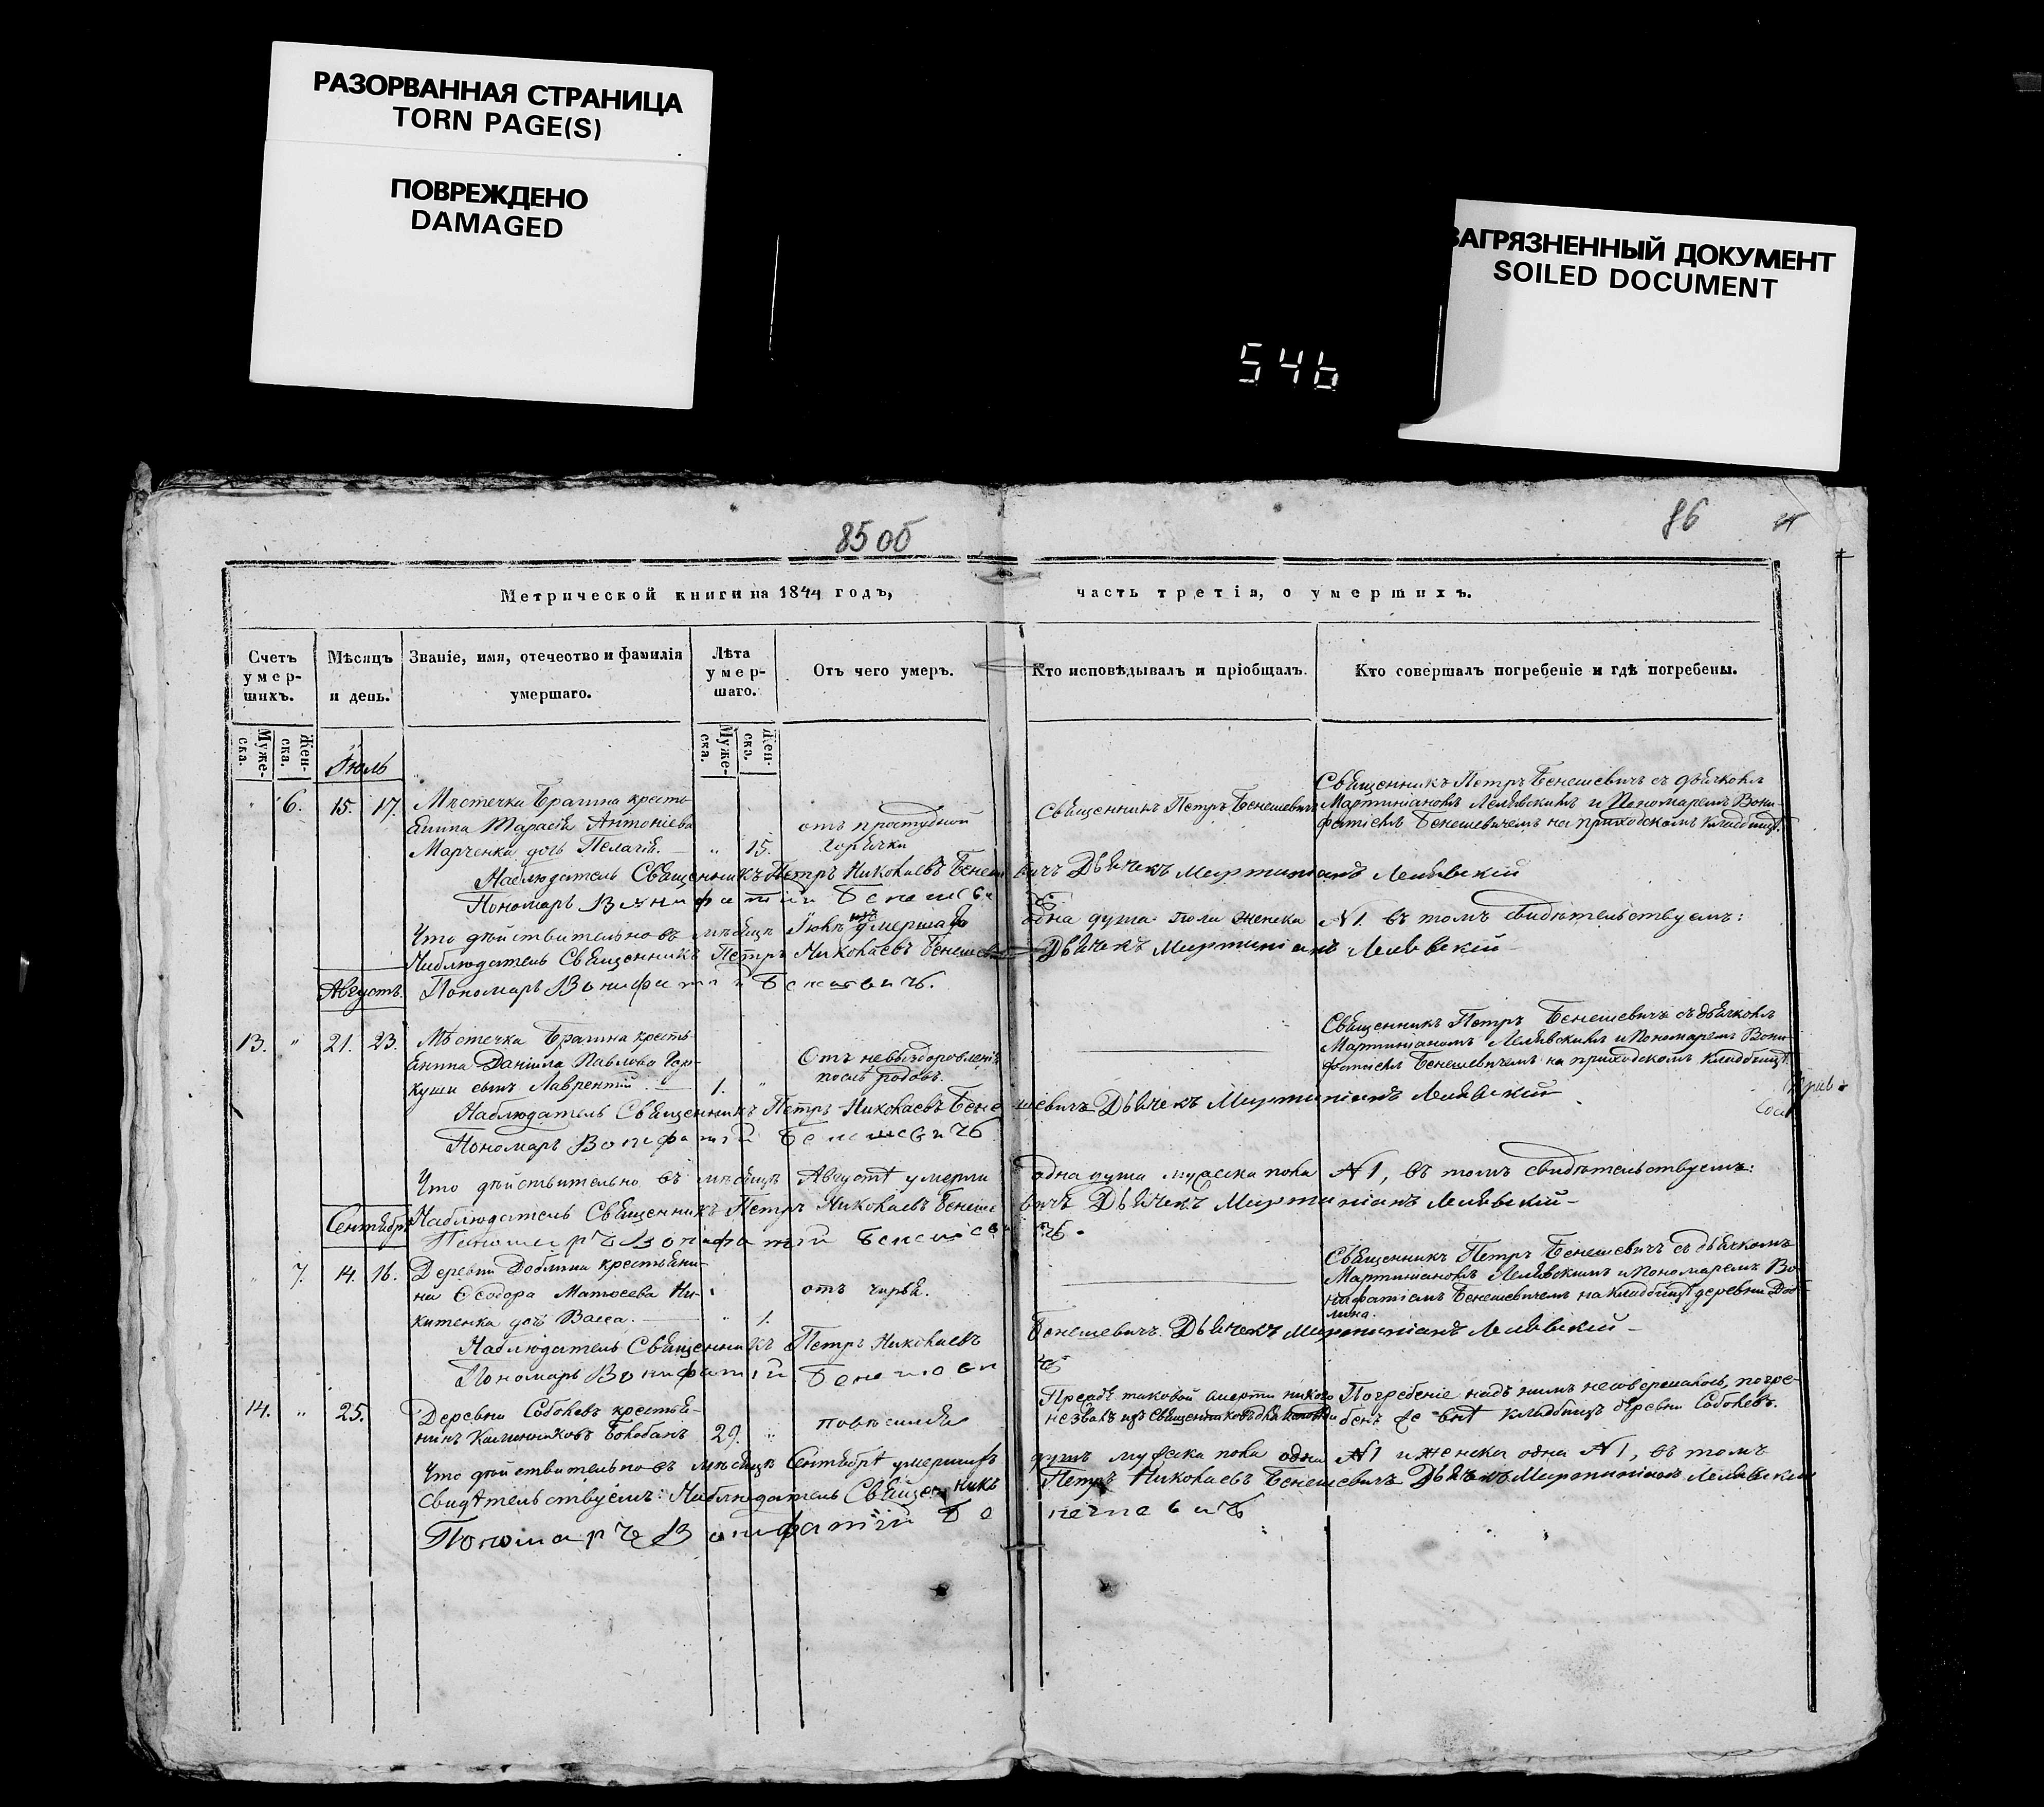 РАЗОРВАННАЯ СТРАНИЦА
TORN PAGE(S)
ПОВРЕЖДЕНО
DAMAGED
ЗАГРЯЗНЕННЫЙ ДОКУМЕНТ
SOILED DOCUMENT
546
85 об
86
Метрической книги на 1844 годъ,
часть третія, о умершихъ.
Счетъ умер-шихъ.
Мѣсяцъ и день.
Званіе, имя, отечество и фамилія умершаго.
Лѣта умер-шаго.
Отъ чего умеръ.
Кто исповѣдывалъ и пріобщалъ.
Кто совершалъ погребеніе и гдѣ погребены.
Муже-ска.
Жен-ска.
Муже-ска.
Жен-ска.
Іюль
6. 15. 17.
Мѣстечка Брагина кресть-
янина Тарасія Антоніева
Марченка дочь Пелагія. 15.
отъ простудной
горячки
Священникъ Петръ Бенешевичъ
Священникъ Петръ Бенешевичъ съ дьячкомъ
Мартиніаномъ Лелявскимъ и Пономаремъ Вони-
фатіемъ Бенешевичемъ на приходскомъ кладбищѣ.
Наблюдатель Священникъ Петръ Николаевъ Бенешевичъ Дьячекъ Мартиніанъ Лелявскій
Пономарь Вонифатій Бенешевичъ
Что дѣйствительно въ мѣсяцѣ Іюлѣ умершая одна душа пола женска №1. въ томъ свидѣтельствуемъ:
Наблюдатель Священникъ Петръ Николаевъ Бенешевичъ Дьячекъ Мартиніанъ Лелявскій
Августъ.
Пономарь Вонифатій Бенешевичъ.
13. " 21. 23.
Мѣстечка Брагина кресть-
янина Даніила Павлова
сынъ Лаврентій. 1. "
Отъ невыздоровленія
послѣ родовъ.
Священникъ Петръ Бенешевичъ съ дьячкомъ
Мартиніаномъ Лелявскимъ и Пономаремъ Вони-
фатіемъ Бенешевичемъ на приходскомъ кладбищѣ
Наблюдатель Священникъ Петръ Николаевъ Бенешевичъ Дьячекъ Мартиніанъ Лелявскій
Пономарь Вонифатій Бенешевичъ
Что дѣйствительно въ мѣсяцѣ Августѣ умерла одна душа мужска пола №1, въ томъ свидѣтельствуемъ:
Сентябрь
Наблюдатель Священникъ Петръ Николаевъ Бенешевичъ Дьячекъ Мартиніанъ Лелявскій
Пономарь Вонифатій Бенешевичъ.
" 7. 14. 16.
Деревни крестьяни-
на Ѳеодора Матѳеева Ни-
китенка дочь Васса. " 1.
отъ чирья.
Священникъ Петръ Бенешевичъ съ дьячкомъ
Мартиніаномъ Лелявскимъ и Пономаремъ Во-
нифатіемъ Бенешевичемъ на кладбищѣ деревни
Наблюдатель Священникъ Петръ Николаевъ Бенешевичъ. Дьячекъ Мартиніанъ Лелявскій
Пономарь Вонифатій Бенешевичъ
14. " 25.
Деревни Соболевъ крестья-
нинъ 29. "
повѣсился
Предъ таковой смерти никого
не звалъ изъ Священниковъ для
Погребеніе надъ нимъ не совершалось, погре-
бенъ внѣ кладбища деревни Соболевъ.
Что дѣйствительно въ мѣсяцѣ Сентябрѣ умершихъ душъ мужска пола одна №1 и женска одна №1, въ томъ
свидѣтельствуемъ: Наблюдатель Священникъ Петръ Николаевъ Бенешевичъ Дьячекъ Мартиніанъ Лелявскій
Пономарь Вонифатій Бенешевичъ